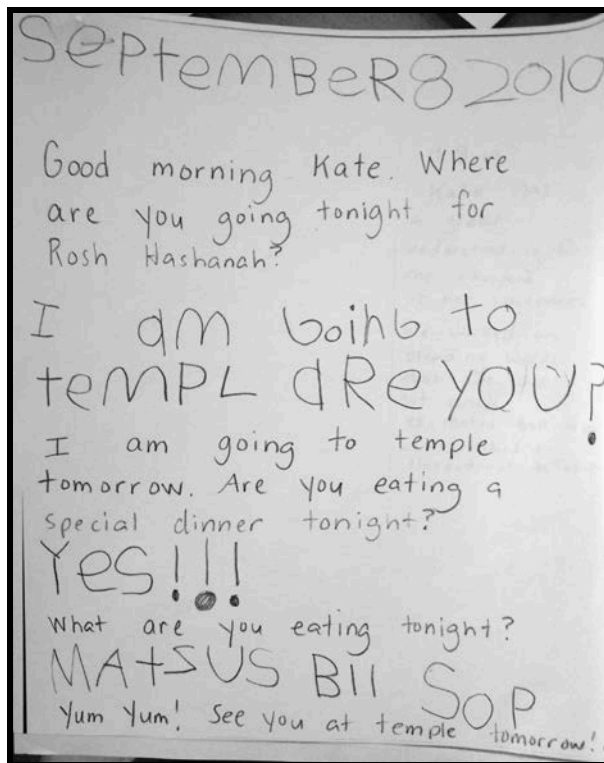 SePtemBeR 8 2010
Good morning Kate. Where
are you going tonight for
Rosh Hashanah?
I am GoihG to
temPL aRe YOU?
I am going to temple
tomorrow. Are you eating a
special dinner tonight?
Yes!!!
What are you eating tonight?
MAtSUS Bll SOP
Yum Yum! See you at temple tomorrow!